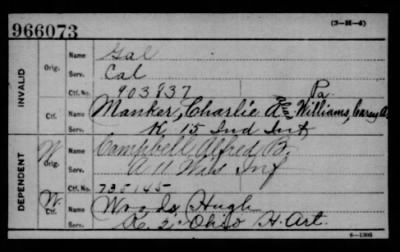 (3-H-4)
966073
INVALID
Orig. Name Gal
Serv. Cal
Ctf. No. 903837 Pa.
Ctf. Name Manker, Charlie A alias Williams, Carey A
Serv. K, 15 Ind Inf
DEPENDENT
W Orig. Name Campbell Alfred B.
Serv. A 11 Wis Inf
Ctf. No. 735145
W Ctf. Name Woods, Hugh
Serv. K. 2 Ohio H. Art.
6—1306